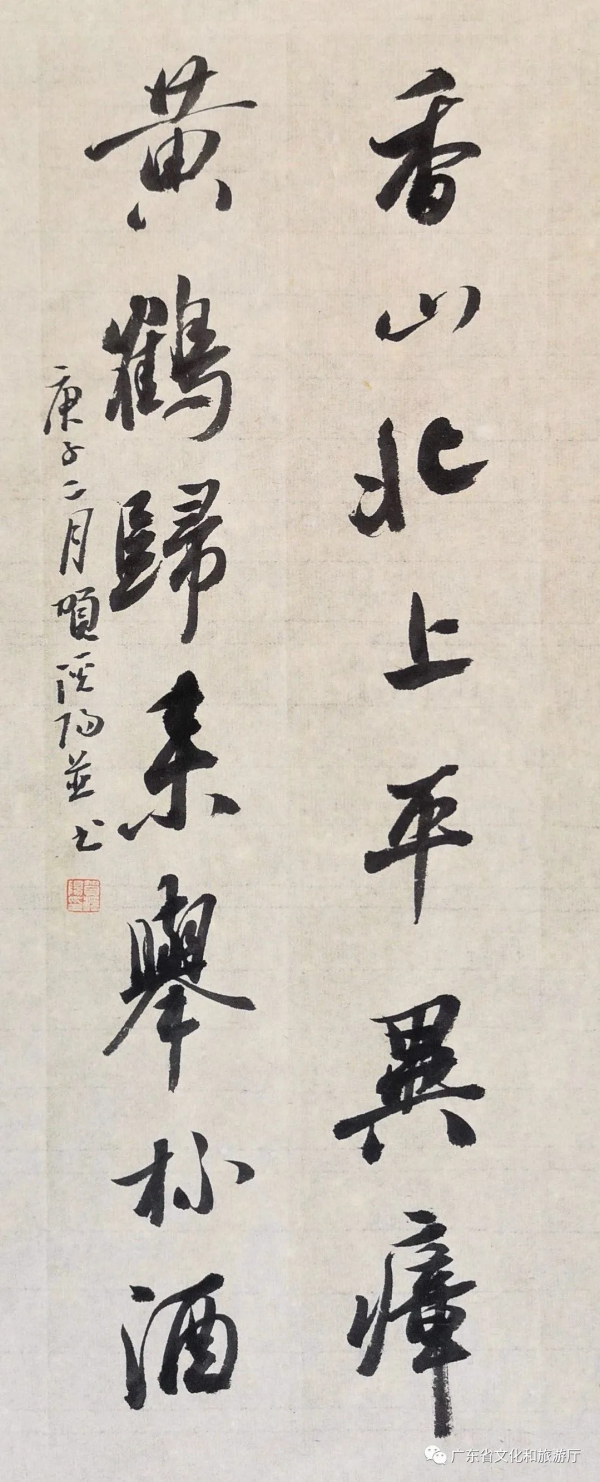 香山北上平異瘴
黄鶴歸来舉杯酒
庚子二月 阳並书
广东省文化和旅游厅